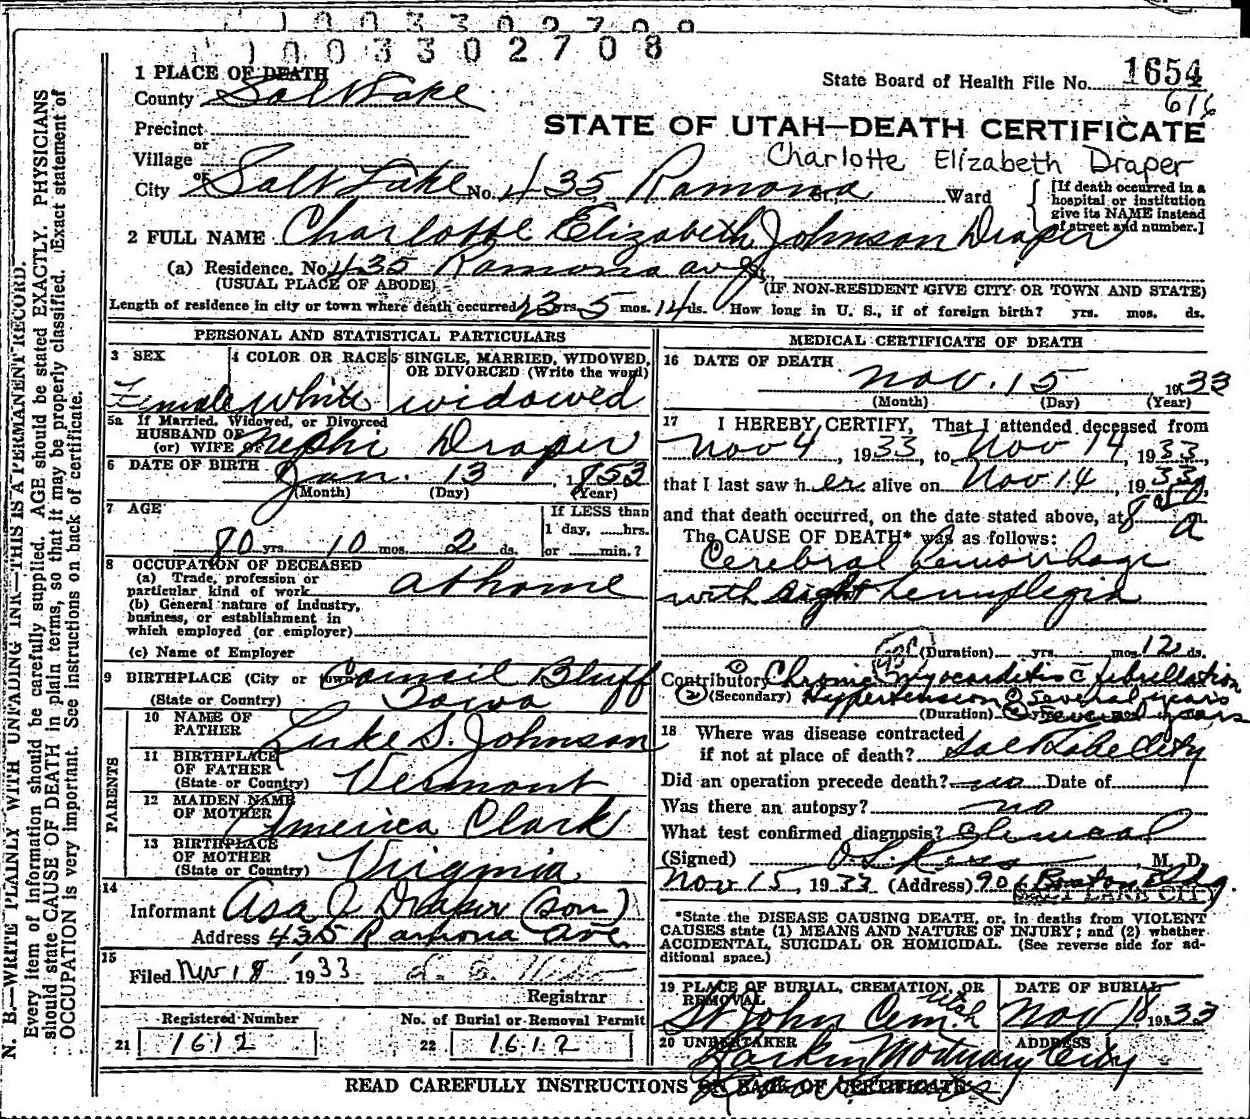 1003302708
1003302708
1 PLACE OF DEATH
County Salt Lake
State Board of Health File No. 1654
616
Precinct
or
Village
STATE OF UTAH—DEATH CERTIFICATE
Charlotte Elizabeth Draper
City or Salt Lake No. 435 Ramona St., Ward
[If death occurred in a hospital or institution give its NAME instead of street and number.]
2 FULL NAME Charlotte Elizabeth Johnson Draper
(a) Residence. No. 435 Ramona av St.,
(USUAL PLACE OF ABODE) (IF NON-RESIDENT GIVE CITY OR TOWN AND STATE)
Length of residence in city or town where death occurred 23 yrs 5 mos. 14 ds. How long in U. S., if of foreign birth? yrs. mos. ds.
PERSONAL AND STATISTICAL PARTICULARS
3 SEX
Female
4 COLOR OR RACE
white
5 SINGLE, MARRIED, WIDOWED,
OR DIVORCED (Write the word)
widowed
5a If Married, Widowed, or Divorced
HUSBAND OF
(or) WIFE OF Nephi Draper
6 DATE OF BIRTH Jan. 13, 1853
(Month) (Day) (Year)
7 AGE
80 yrs. 10 mos. 2 ds.
If LESS than
1 day, hrs.
or min.?
8 OCCUPATION OF DECEASED
(a) Trade, profession or
particular kind of work at home
(b) General nature of Industry,
business, or establishment in
which employed (or employer)
(c) Name of Employer
9 BIRTHPLACE (City or town) Council Bluff
(State or Country) Iowa
PARENTS
10 NAME OF
FATHER Luke S. Johnson
11 BIRTHPLACE
OF FATHER
(State or Country) Vermont
12 MAIDEN NAME
OF MOTHER America Clark
13 BIRTHPLACE
OF MOTHER
(State or Country) Virginia
14
Informant Asa J Draper (son)
Address 435 Ramona Ave.
15
Filed Nov 18, 1933
Registrar
Registered Number No. of Burial or Removal Permit
21 1612 22 1612
MEDICAL CERTIFICATE OF DEATH
16 DATE OF DEATH
Nov. 15, 1933
(Month) (Day) (Year)
17 I HEREBY CERTIFY, That I attended deceased from
Nov 4, 1933, to Nov 14, 1933,
that I last saw her alive on Nov 14, 1933,
and that death occurred, on the date stated above, at 8 50 a
The CAUSE OF DEATH* was as follows:
Cerebral hemorrhage
with right hemiplegia
(Duration) yrs. mos. 12 ds.
Contributory ① Chronic myocarditis c̄ fibrillation
② (Secondary) Hypertension ① several years
(Duration) ② several years
18 Where was disease contracted
if not at place of death? Salt Lake City
Did an operation precede death? no Date of
Was there an autopsy? no
What test confirmed diagnosis? Clinical
(Signed) M. D.
Nov 15, 1933 (Address) 901 Boston Bldg.
SALT LAKE CITY
*State the DISEASE CAUSING DEATH, or, in deaths from VIOLENT
CAUSES state (1) MEANS AND NATURE OF INJURY; and (2) whether
ACCIDENTAL, SUICIDAL OR HOMICIDAL. (See reverse side for ad-
ditional space.)
19 PLACE OF BURIAL, CREMATION, OR
REMOVAL
St John Cem Utah
DATE OF BURIAL
Nov 18, 1933
20 UNDERTAKER ADDRESS
Larkin Mortuary City
READ CAREFULLY INSTRUCTIONS ON BACK OF CERTIFICATE
N. B.—WRITE PLAINLY WITH UNFADING INK—THIS IS A PERMANENT RECORD.
Every item of information should be carefully supplied. AGE should be stated EXACTLY. PHYSICIANS
should state CAUSE OF DEATH in plain terms, so that it may be properly classified. (Exact statement of
OCCUPATION is very important. See instructions on back of certificate.